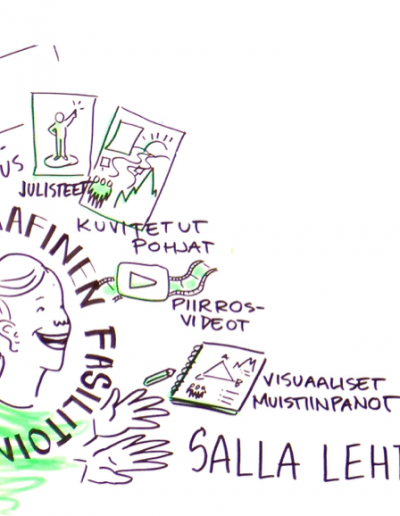 US
JULISTEET
KUVITETUT
POHJAT
AFINEN FASILITOI
PIIRROS-
VIDEOT
VISUAALISET
MUISTIINPANOT
SALLA LEHT